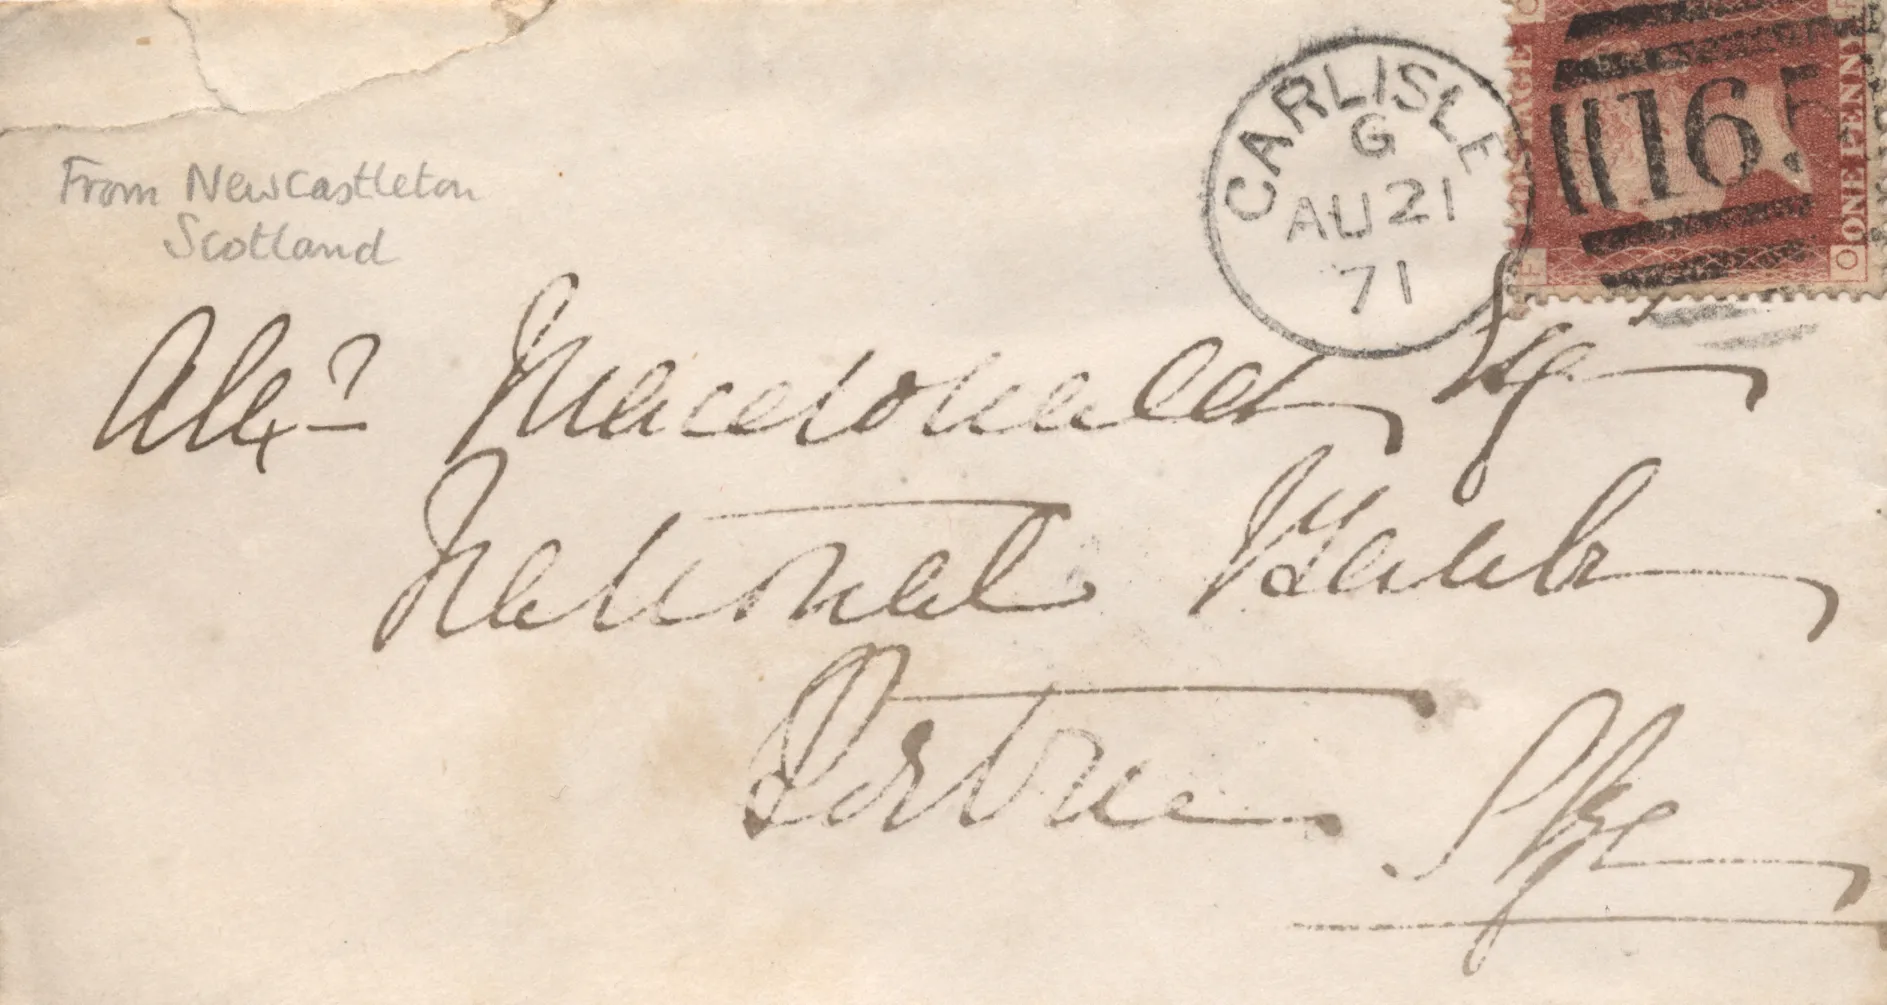 From Newcastleton
Scotland
CARLISLE
G
AU 21
71
165
POSTAGE
ONE PENNY
F
O
Alexr Macdonald Esqr
National Bank
Portree Skye